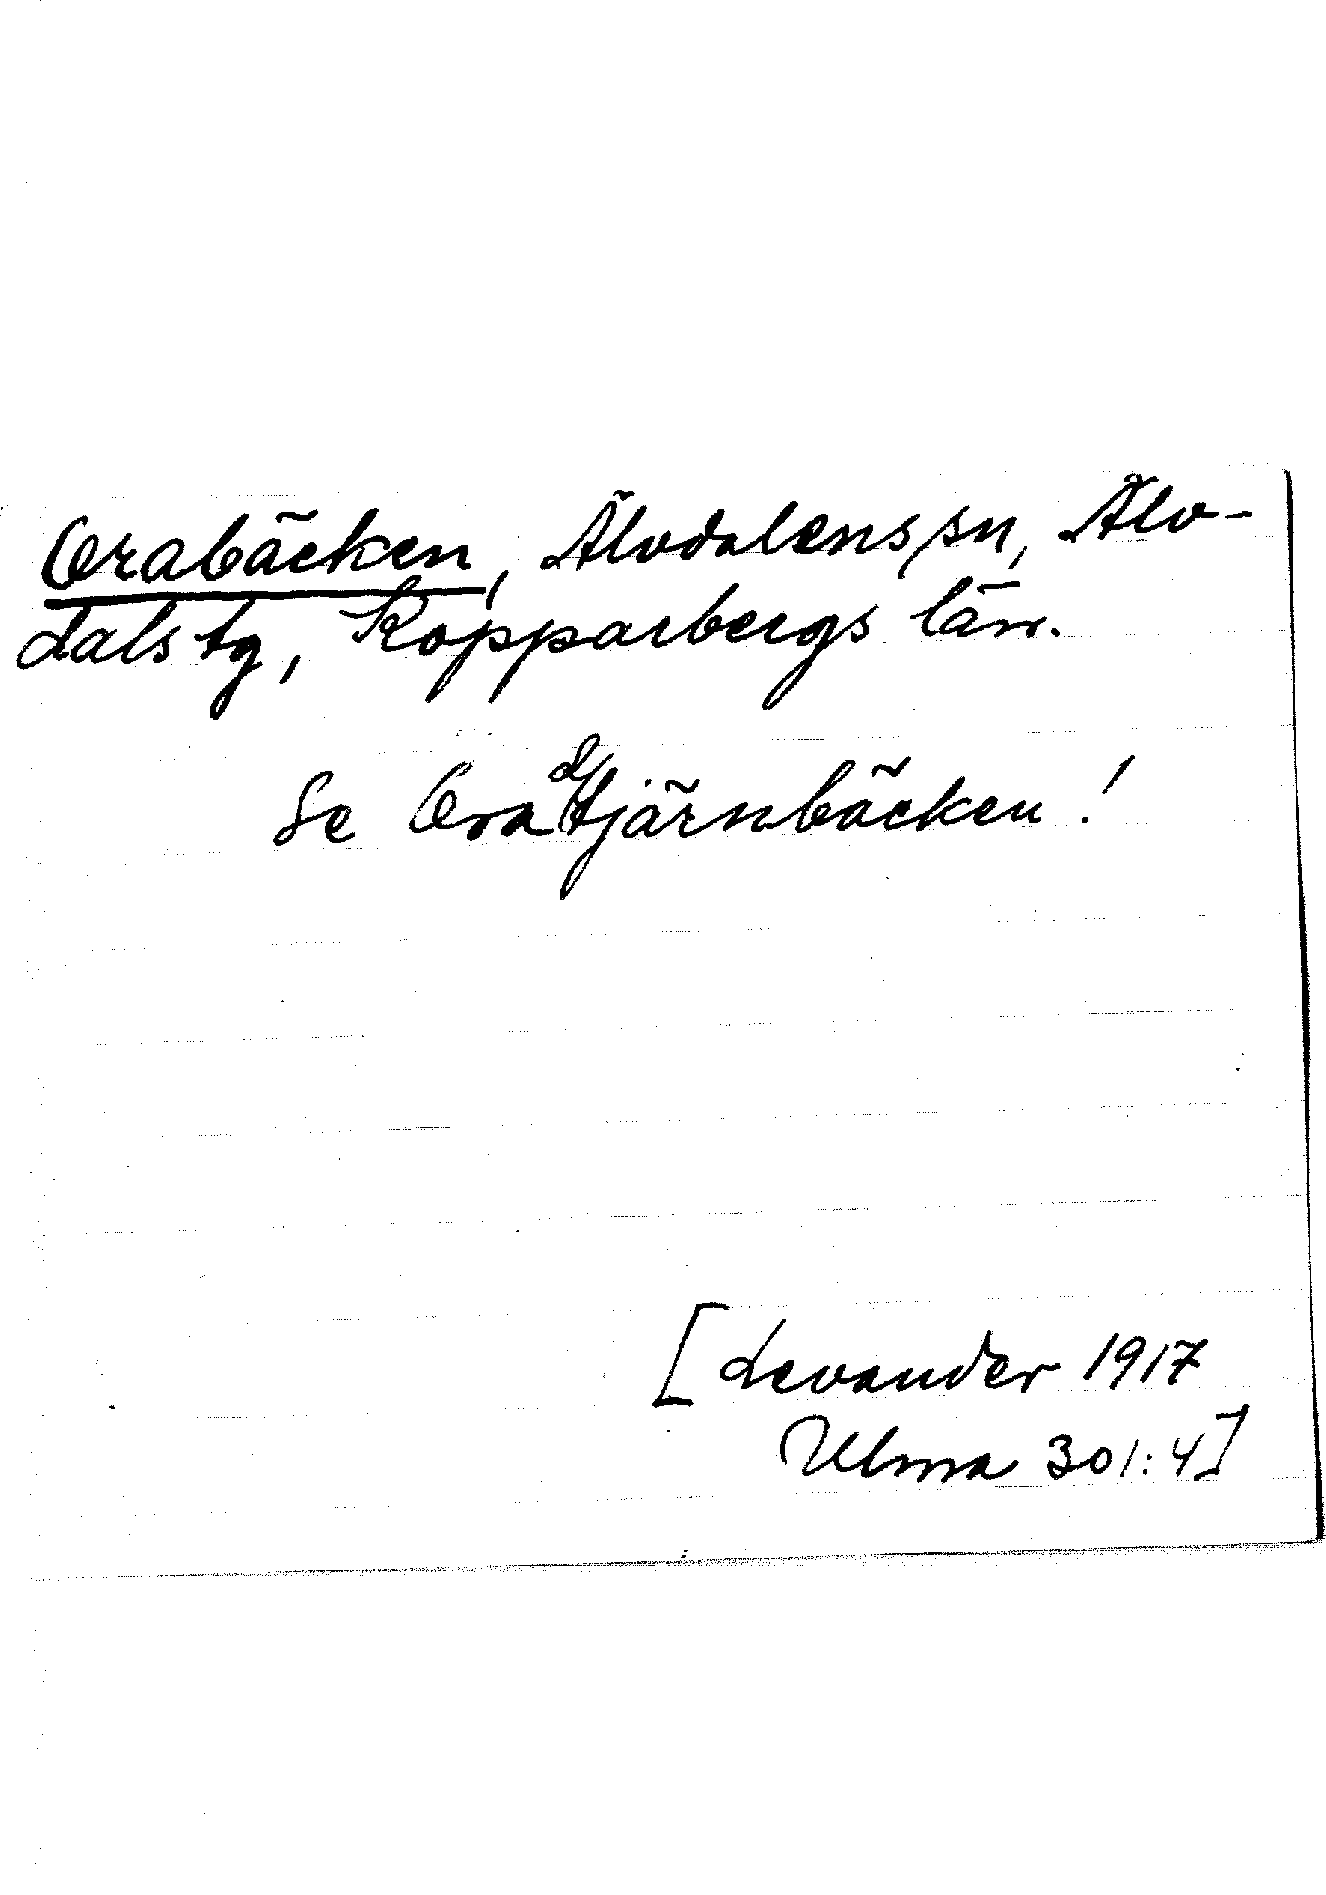 Orabäcken, Älvdalens sn, Älv-
dals tg, Kopparbergs län.
Se Oradtjärnbäcken!
[Levander 1917
Ulma 301:4]